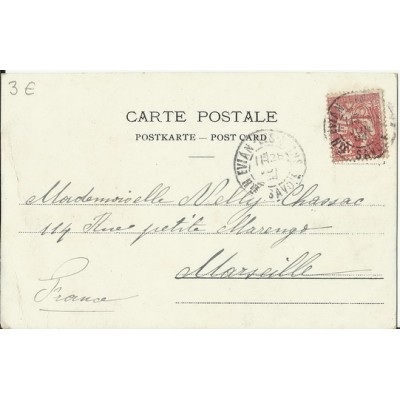 3 €
CARTE POSTALE
POSTKARTE — POST CARD
EVIAN-LES-BAINS
SAVOIE
Mademoiselle Nelly Chassac
114 Rue petite Marengo
Marseille
France